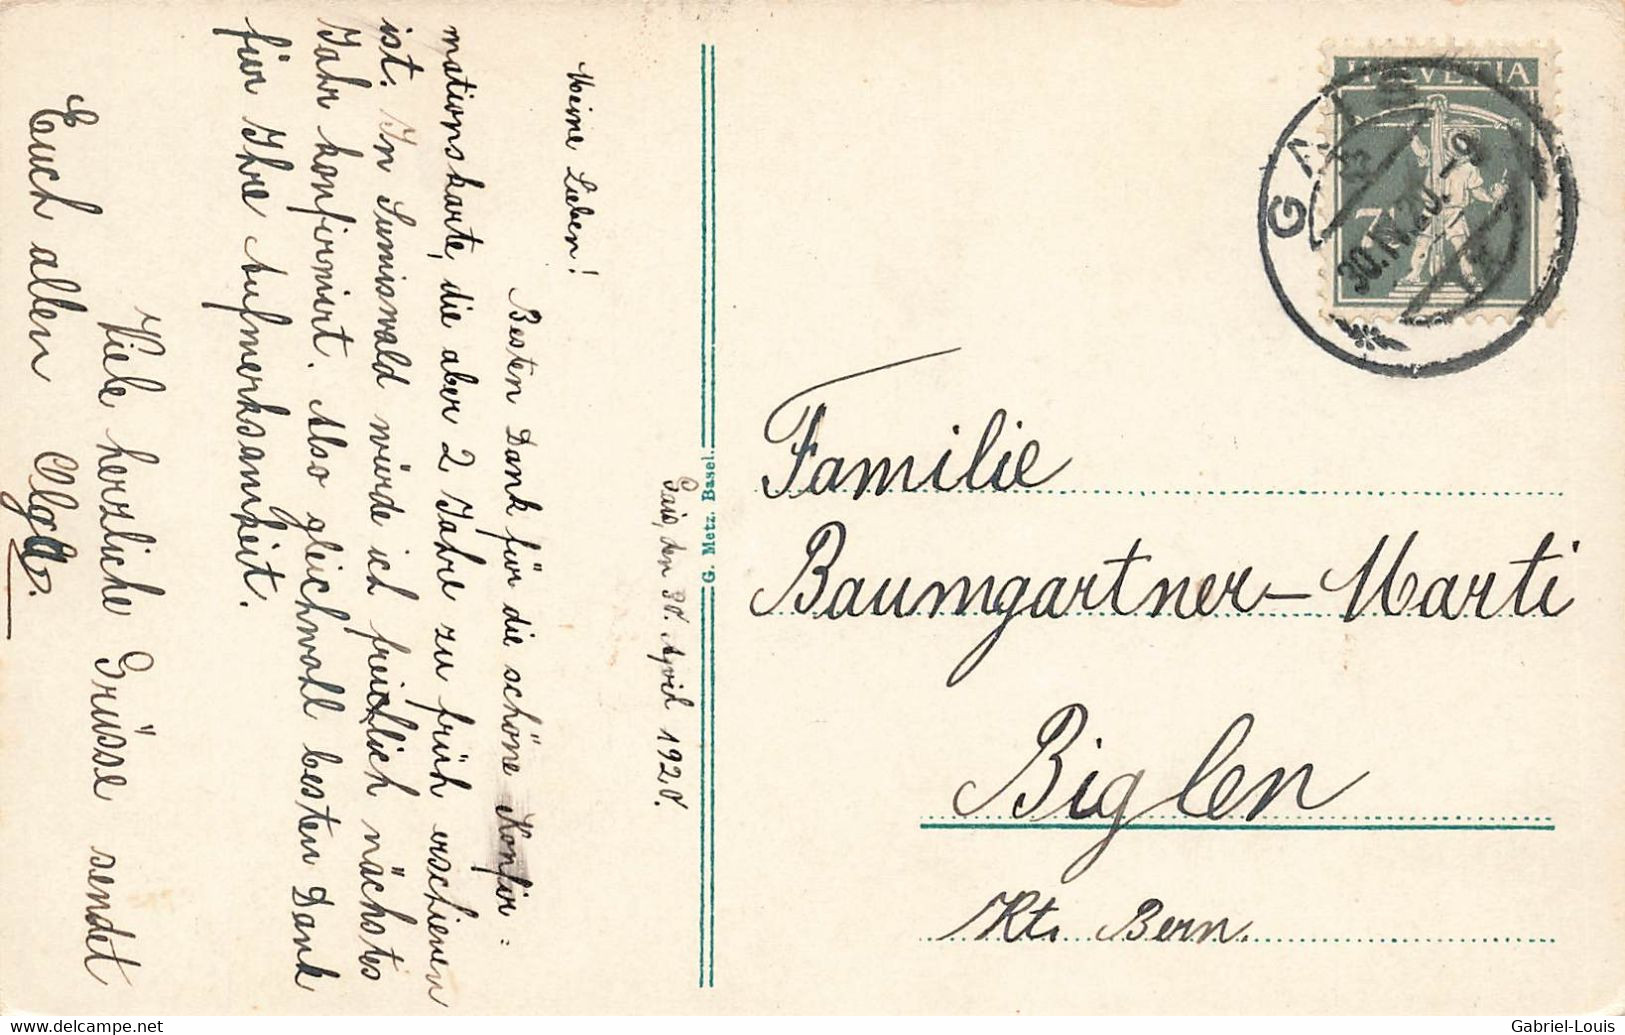 Gais, den 30. April 1920.
Meine Lieben!
Besten Dank für die schöne Konfir=
mationskarte, die aber 2 Jahre zu früh erschienen
ist. In Sumiswald würde ich freilich nächstes
Jahr konfirmiert. Also gleichwohl besten Dank
für Ihre Aufmerksamkeit.
Viele herzliche Grüsse sendet
Euch allen Olga.
G. Metz, Basel.
HELVETIA
7½
GAIS
30.IV.20.-9
Familie
Baumgartner-Marti
Biglen
Kt. Bern.
www.delcampe.net
Gabriel-Louis